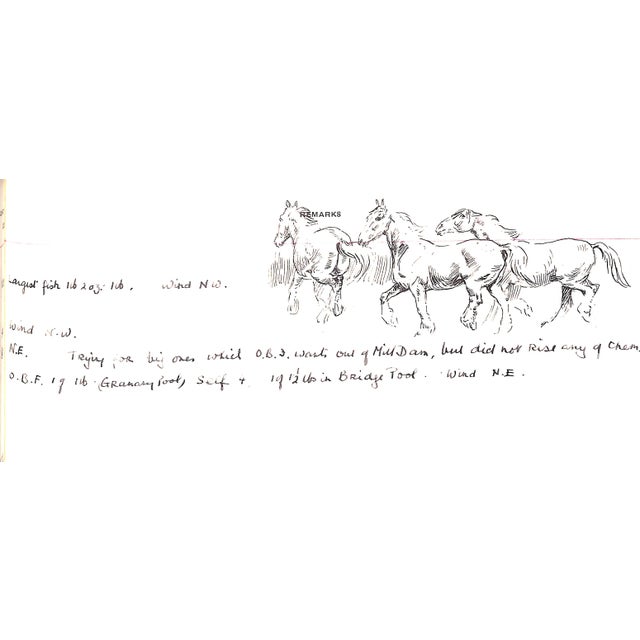 REMARKS
Largest fish 1lb 2oz. 1lb. Wind N.W.
Wind N.W.
N.E. Trying for big ones which O.B.J. wants out of Mill Dam, but did not rise any of them.
O.B.F. 1 of 1lb (Granary Pool) Self 4. 1 of 1½ lbs in Bridge Pool. Wind N.E.